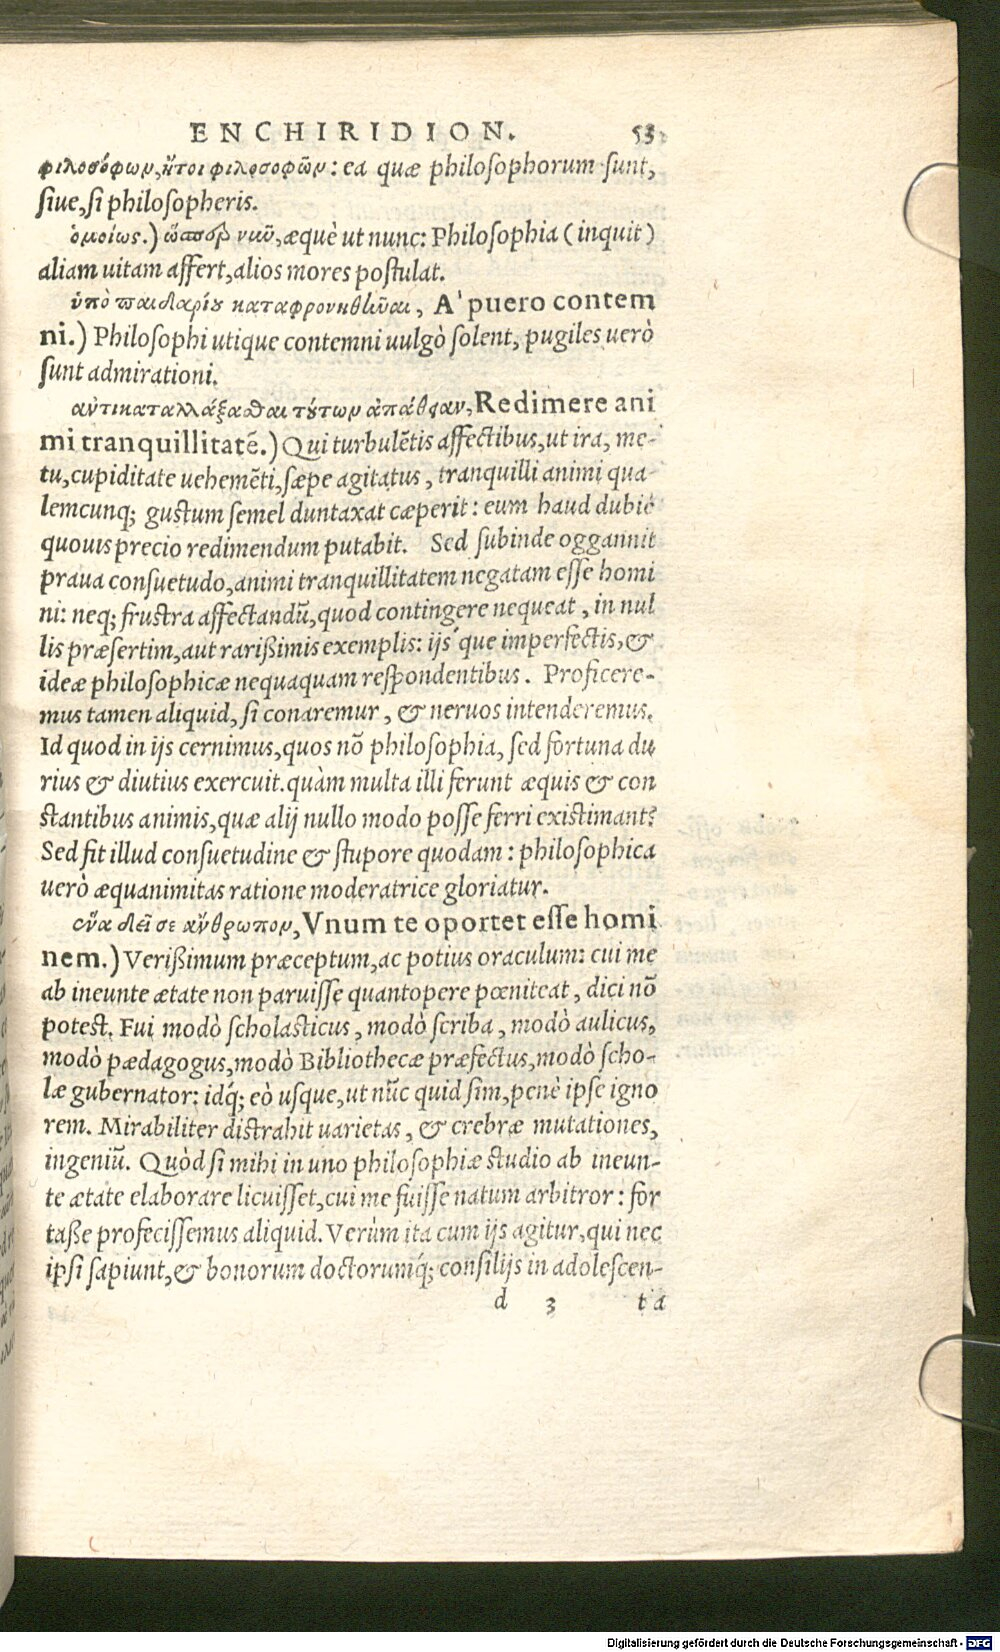 ENCHIRIDION. 53
φιλοσόφων, ἤτοι φιλοσοφῶν: ea quæ philosophorum sunt,
siue, si philosopheris.
ὁμοίως.) ὥσπερ νῦν, æquè ut nunc: Philosophia (inquit)
aliam uitam affert, alios mores postulat.
ὑπὸ παιδαρίου καταφρονηθῆναι, A' puero contem
ni.) Philosophi utique contemni uulgò solent, pugiles uerò
sunt admirationi.
ἀντικαταλλάξασθαι τούτων ἀπάθειαν, Redimere ani
mi tranquillitatē.) Qui turbulētis affectibus, ut ira, me-
tu, cupiditate uehemēti, sæpe agitatus, tranquilli animi qua-
lemcunq; gustum semel duntaxat cæperit: eum haud dubiè
quouis precio redimendum putabit. Sed subinde oggannit
praua consuetudo, animi tranquillitatem negatam esse homi
ni: neq; frustra affectandū, quod contingere nequeat, in nul
lis præsertim, aut rarißimis exemplis: ijs'que imperfectis, &
ideæ philosophicæ nequaquam respondentibus. Proficere-
mus tamen aliquid, si conaremur, & neruos intenderemus.
Id quod in ijs cernimus, quos nō philosophia, sed fortuna du
rius & diutius exercuit. quàm multa illi ferunt æquis & con
stantibus animis, quæ alij nullo modo posse ferri existimant?
Sed fit illud consuetudine & stupore quodam: philosophica
uerò æquanimitas ratione moderatrice gloriatur.
ἕνα δεῖ σε ἄνθρωπον, Vnum te oportet esse homi
nem.) Verißimum præceptum, ac potius oraculum: cui me
ab ineunte ætate non paruisse quantopere pœniteat, dici nō
potest. Fui modò scholasticus, modò scriba, modò aulicus,
modò pædagogus, modò Bibliothecæ præfectus, modò scho-
læ gubernator: idq́; eò usque, ut nūc quid sim, penè ipse igno
rem. Mirabiliter distrahit uarietas, & crebræ mutationes,
ingeniū. Quòd si mihi in uno philosophiæ studio ab ineun-
te ætate elaborare licuisset, cui me fuisse natum arbitror: for
taße profecissemus aliquid. Verùm ita cum ijs agitur, qui nec
ipsi sapiunt, & bonorum doctorumq́; consilijs in adolescen-
d 3 ta
Digitalisierung gefördert durch die Deutsche Forschungsgemeinschaft - DFG